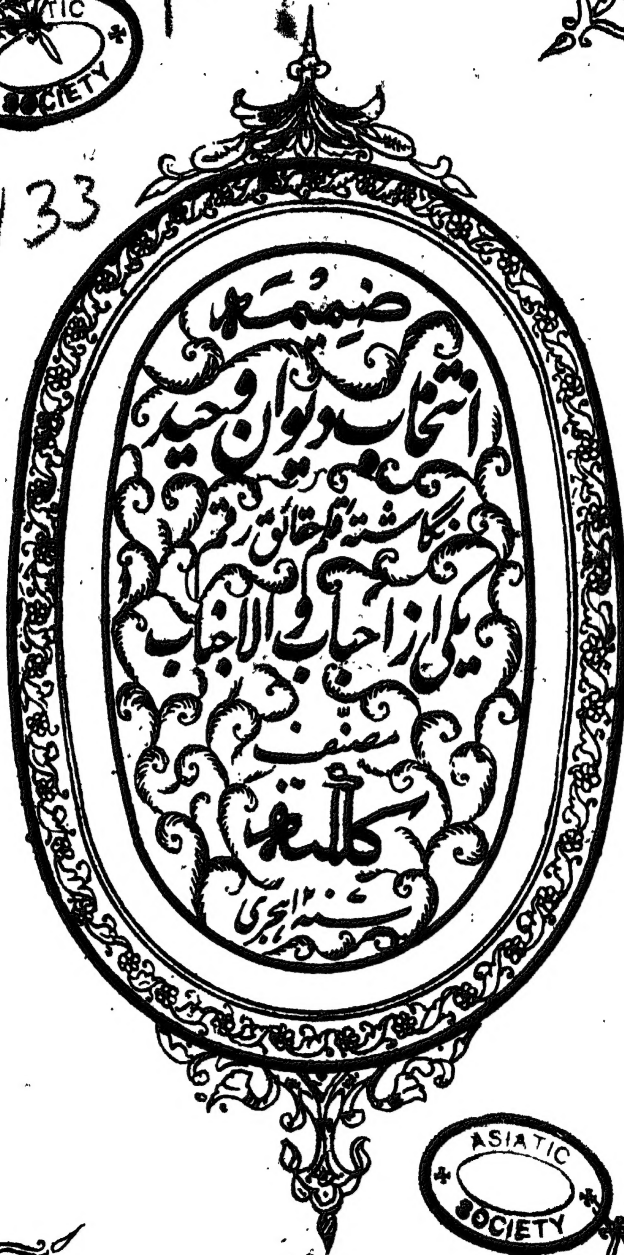 TIC
SOCIETY
133
ضمیمه
انتخاب دیوان وحید
نگاشتهٔ قلم حقائق رقم
یکی از احباب والا جناب
مصنّف
کلکته
سنه هجری
ASIATIC
SOCIETY